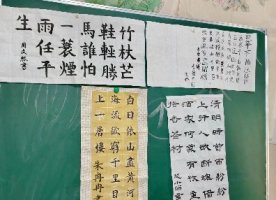 竹杖芒
鞋輕勝
馬誰怕
一蓑煙
雨任平
生
白日依山盡黃河
海流欲窮千里目
上一層樓朱丹丹
清明時節雨紛紛
上行人欲斷魂借
酒家何處有牧
指杏花村